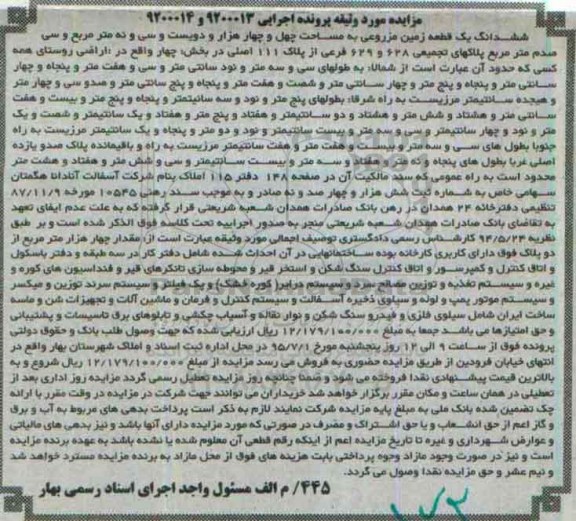 مزایده مورد وثیقه پرونده اجرایی ۹۲۰۰۰۱۳ و ۹۲۰۰۰۱۴
ششدانگ یک قطعه زمین مزروعی به مساحت چهل و چهار هزار و دویست و سی و نه متر مربع و سی
صدم متر مربع پلاکهای تجمیعی ۶۲۸ و ۶۲۹ فرعی از پلاک ۱۱۱ اصلی در بخش: چهار واقع در :اراضی روستای همه
کسی که حدود آن عبارت است از شمالا: به طولهای سی و سه متر و نود سانتی متر و سی و هفت متر و پنجاه و چهار
سانتی متر و پنجاه و پنج متر و چهار سانتی متر و شصت و هفت متر و پنجاه و پنج سانتی متر و صدو سی و چهار متر
و هیجده سانتیمتر مرزیست به راه شرقا: بطولهای پنج متر و نود و سه سانتیمتر و پنجاه و پنج متر و بیست و هفت
سانتی متر و هشتاد و شش متر و هشتاد و دو سانتیمتر و هفتاد و پنج متر و هفتاد و یک سانتیمتر و شصت و یک
متر و نود و چهار سانتیمتر و سی و سه متر و بیست سانتیمتر و نود و دو متر و پنجاه و یک سانتیمتر مرزیست به راه
جنوبا بطول های سی و سه متر و بیست و هفت متر و هفت سانتیمتر مرزیست به راه و باقیمانده پلاک صدو یازده
اصلی غربا بطول های پنجاه و که متر و هفتاد و سه متر و بیست سانتیمتر و سی و شش متر و هفتاد و هشت متر
محدود است به راه عمومی که سند مالکیت آن در صفحه ۱۴۸ دفتر ۱۱۵ املاک بنام شرکت آسفالت آنادانا هگمتان
سهامی خاص به شماره ثبت شش هزار و چهار صد و نه صادر و به موجب سند رهنی ۱۰۵۴۵ مورخه ۸۷/۱۱/۹
تنظیمی دفترخانه ۲۴ همدان در رهن بانک صادرات همدان شعبه شریعتی قرار گرفته که به علت عدم ایفای تعهد
به تقاضای بانک صادرات همدان شعبه شریعتی منجر به صدور اجراییه تحت کلاسه فوق الذکر شده است و بر طبق
نظریه ۹۴/۵/۲۴ کارشناس رسمی دادگستری توصیف اجمالی مورد وثیقه عبارت است از: مقدار چهار هزار متر مربع از
دو پلاک فوق دارای کاربری کارخانه بوده ساختمانهایی در آن احداث شده شامل دفتر کار در سه طبقه و دفتر باسکول
و اتاق کنترل و کمپرسور و اتاق کنترل سنگ شکن و استخر قیر و محوطه سازی تانکرهای قیر و فنداسیون های کوره و
غیره و سیستم تغذیه و توزین مصالح سرد و سیستم درایر( کوره خشک) و بک فیلتر و سیستم سرند توزین و میکسر
و سیستم موتور پمپ و لوله و سیلوی ذخیره آسفالت و سیستم کنترل و فرمان و ماشین آلات و تجهیزات شن و ماسه
ساخت ایران شامل سیلوی فلزی و فیدرو سنگ شکن و نوار نقاله و آسیاب چکشی و تابلوهای برق تاسیسات و پشتیبانی
و حق امتیازها می باشد جمعا به مبلغ ۱۲/۱۷۹/۱۰۰/۰۰۰ ریال ارزیابی شده که جهت وصول طلب بانک و حقوق دولتی
پرونده فوق از ساعت ۹ الی ۱۲ روز پنجشنبه مورخ ۹۵/۷/۱ در محل اداره ثبت اسناد و املاک شهرستان بهار واقع در
انتهای خیابان فرودین از طریق مزایده حضوری به فروش می رسد مزایده از مبلغ ۱۲/۱۷۹/۱۰۰/۰۰۰ ریال شروع و به
بالاترین قیمت پیشنهادی نقدا فروخته می شود و ضمنا چنانچه روز مزایده تعطیل رسمی گردد مزایده روز اداری بعد از
تعطیلی در همان ساعت و مکان مقرر برگزار خواهد شد خریداران می توانند جهت شرکت در مزایده در وقت مقرر با ارائه
چک تضمین شده بانک ملی به مبلغ پایه مزایده شرکت نمایند لازم به ذکر است پرداخت بدهی های مربوط به آب و برق
و گاز اعم از حق انشعاب و یا حق اشتراک و مصرف در صورتی که مورد مزایده دارای آنها باشد و نیز بدهی های مالیاتی
و عوارض شهرداری و غیره تا تاریخ مزایده اعم از اینکه رقم قطعی آن معلوم شده یا نشده باشد به عهده برنده مزایده
است و نیز در صورت وجود مازاد وجوه پرداختی بابت هزینه های فوق از محل مازاد به برنده مزایده مسترد خواهد شد
و نیم عشر و حق مزایده نقدا وصول می گردد.
۴۴۵/ م الف مسئول واحد اجرای اسناد رسمی بهار